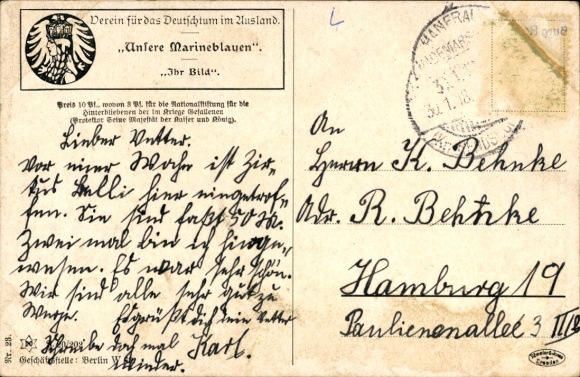 Verein für das Deutschtum im Ausland.
„Unsere Marineblauen“.
„Ihr Bild“.
Preis 10 Pf., wovon 3 Pf. für die Nationalstiftung für die
Hinterbliebenen der im Kriege Gefallenen
(Protektor Seine Majestät der Kaiser und König).
Lieber Vetter.
Vor einer Woche ist Zir-
kus hier eingetrof-
fen. Sie sind faßt 50 M.
Zwei mal bin ich hinge-
wesen. Es war sehr schön.
Wir sind alle sehr gut zu
Wege. Es grüßt dich dein Vetter
Karl.
Schreibe doch mal
wieder.
Nr. 23.
Geschäftsstelle: Berlin W
An
Herrn K. Behnke
Adr. R. Behnke
Hamburg 19
Paulienenallee 3 III